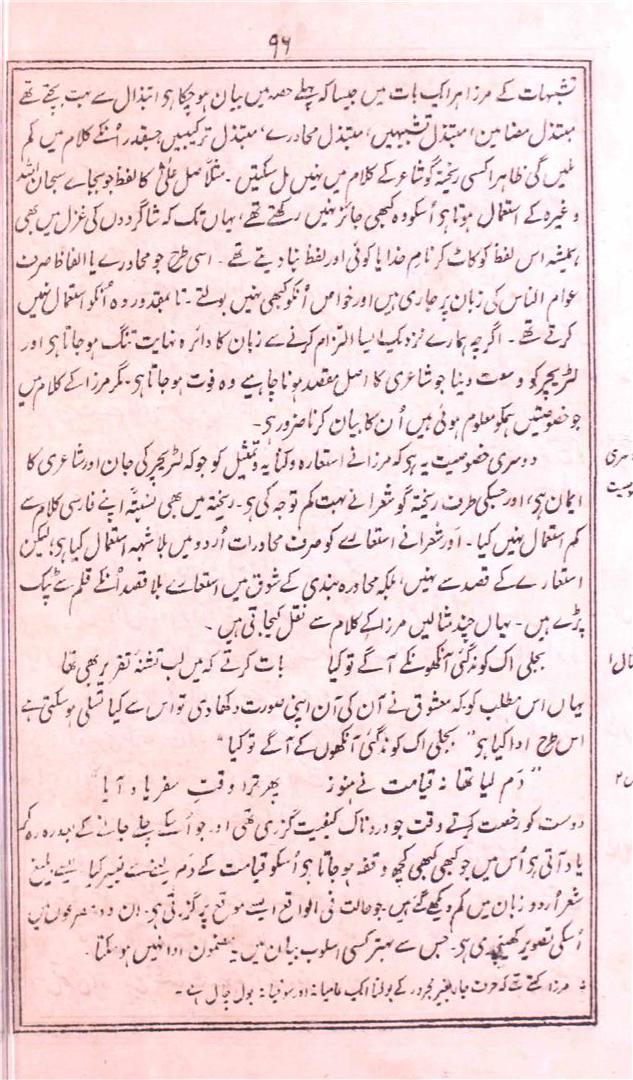 ۹۶
تشبیہات کے مرزا ہر ایک بات میں جیسا کہ پہلے حصہ میں بیان ہو چکا ہی ابتذال سے بہت بچتے تھے
مبتذل مضامین، مبتذل تشبیہیں، مبتذل محاورے، مبتذل ترکیبیں جسقدر اُنکے کلام میں کم
ملیں گی ظاہرا کسی ریختہ گو شاعر کے کلام میں نہیں مل سکتیں ۔ مثلاً صل علیٰ کا لفظ جو بجاے سبحان اللہ
وغیرہ کے استعمال ہوتا ہو اُسکو وہ کبھی جائز نہیں رکھتے تھے، یہاں تک کہ شاگردوں کی غزل میں بھی
ہمیشہ اس لفظ کو کاٹ کر نامِ خدا یا کوئی اور لفظ بنا دیتے تھے ۔ اسی طرح جو محاورے یا الفاظ صرف
عوام الناس کی زبان پر جاری ہیں اور خواص اُنکو کبھی نہیں بولتے ۔ تا بمقدور وہ اُنکو استعمال نہیں
کرتے تھے ۔ اگرچہ ہمارے نزدیک ایسا التزام کرنے سے زبان کا دائرہ نہایت تنگ ہو جاتا ہی اور
لٹریچر کو وسعت دینا جو شاعری کا اصل مقصد ہونا چاہیے وہ فوت ہو جاتا ہی ۔ مگر مرزا کے کلام میں
جو خصوصیتیں ہمکو معلوم ہوئی ہیں اُن کا بیان کرنا ضرور ہی ۔
دوسری خصوصیت یہ ہی کہ مرزا نے استعارہ و کنایہ و تمثیل کو جو کہ لٹریچر کی جان اور شاعری کا
ایمان ہی، اور جسکی طرف ریختہ گو شعرا نے بہت کم توجہ کی ہی ۔ ریختہ میں بھی نسبتہً اپنے فارسی کلام سے
کم استعمال نہیں کیا ۔ اور شعرا نے استعارے کو صرف محاورات اُردو میں بلا شبہہ استعمال کیا ہی؛ لیکن
استعارے کے قصد سے نہیں، بلکہ محاورہ بندی کے شوق میں استعارے بلا قصد اُنکے قلم سے ٹپک
پڑے ہیں ۔ یہاں چند مثالیں مرزا کے کلام سے نقل کیجاتی ہیں ۔
بجلی اک کوند گئی آنکھونکے آگے تو کیا بات کرتے کہ میں لب تشنۂ تقریر بھی تھا
یہاں اس مطلب کو کہ معشوق نے آن کی آن اپنی صورت دکھا دی تو اس سے کیا تسلی ہو سکتی ہے
اس طرح ادا کیا ہی "بجلی اک کوند گئی آنکھوں کے آگے تو کیا"
"دم لیا تھا نہ قیامت نے ہنوز پھر ترا وقتِ سفر یاد آیا"
دوست کو رخصت کرتے وقت جو دردناک کیفیت گزری تھی اور جو اُسکے چلے جانے کے بعد رہ رہ کر
یاد آتی ہی اُس میں جو کبھی کبھی کچھ وقفہ ہو جاتا ہی اُسکو قیامت کے دم لینے سے تعبیر کیا ایسے بلیغ
شعر اُردو زبان میں کم دیکھے گئے ہیں ۔ جو حالت فی الواقع ایسے موقع پر گزرتی ہی ۔ ان دو مصرعوں میں
اُسکی تصویر کھینچ دی ہی ۔ جس سے بہتر کسی اسلوب بیان میں یہ مضمون ادا نہیں ہو سکتا ۔
مرزا کہتے تھے کہ حرف جار بغیر مجرور کے بولنا ایک عامیانہ اور سوقیانہ بول چال ہے ۔